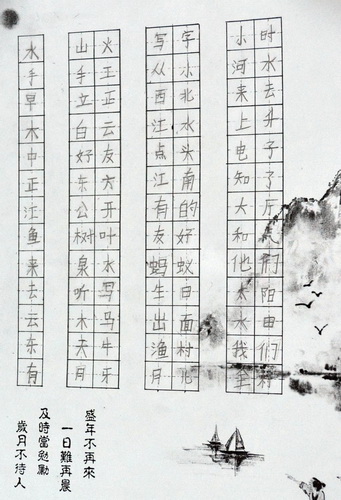 水 山火 写字 小时
手 手王 从小 河水
早 立正 西北 来去
木 白云 江水 上升
中 好友 点头 电子
正 东方 江南 知了
江 公开 有的 大厅
鱼 树叶 友好 和
来 泉水 蚂蚁 他们
去 听写 生日 太阳
云 木马 出面 水田
东 夫牛 渔村 我们
有 月牙 月 全村
盛年不再來
一日難再晨
及時當勉勵
歲月不待人